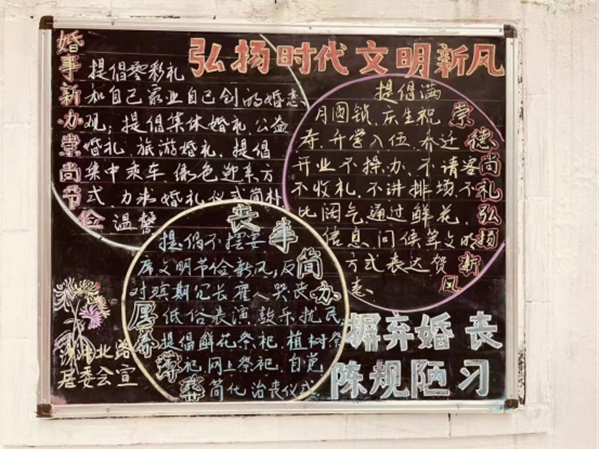 弘扬时代文明新风
婚事新办崇尚节俭
提倡零彩礼
和自己家业自己创的婚恋
观，提倡集体婚礼 公益
婚礼、旅游婚礼，提倡
集中乘车 绿色迎亲方
式，力求婚礼仪式简朴
温馨
崇德尚礼弘扬新风
提倡满
月圆锁、庆生祝
寿、升学入伍、乔迁
开业不操办、不请客
不收礼、不讲排场不
比阔气通过鲜花、
信息、问候等文明
方式表达贺
意
丧事简办
厚养薄葬
提倡不摆宴
席文明节俭新风，反
对殡期冗长雇人哭丧
低俗表演鼓乐扰民
提倡鲜花祭祀、植树祭
祀、网上祭祀，自觉
简化治丧仪式
摒弃婚丧
陈规陋习
北路
居委会宣